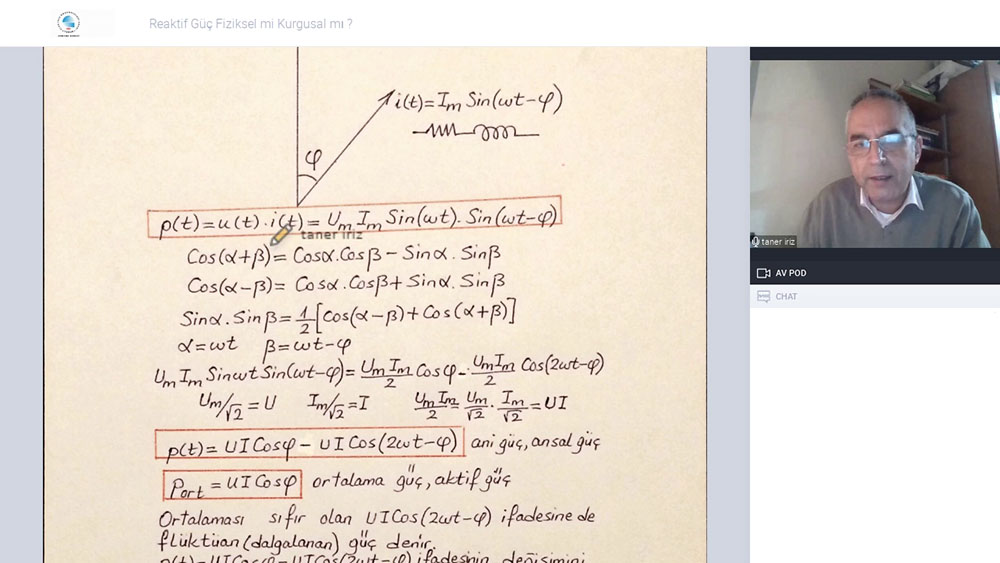 Reaktif Güç Fiziksel mi Kurgusal mı ?
i(t)=Im Sin(ωt-φ)
φ
p(t)=u(t)·i(t)=Um Im Sin(ωt)·Sin(ωt-φ)
taner iriz
Cos(α+β)=Cosα.Cosβ-Sinα.Sinβ
Cos(α-β)=Cosα.Cosβ+Sinα.Sinβ
Sinα.Sinβ=1/2[Cos(α-β)+Cos(α+β)]
α=ωt β=ωt-φ
Um Im Sinωt Sin(ωt-φ)=Um Im/2 Cosφ-Um Im/2 Cos(2ωt-φ)
Um/√2=U Im/√2=I Um Im/2=Um/√2·Im/√2=UI
p(t)=UICosφ-UICos(2ωt-φ) ani güç, ansal güç
Port=UICosφ ortalama güç, aktif güç
Ortalaması sıfır olan UICos(2ωt-φ) ifadesine de
flüktüan (dalgalanan) güç denir.
p(t)=UICosφ-UICos(2ωt-φ) ifadesinin değişimini
taner iriz
AV POD
CHAT